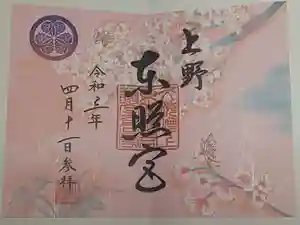 上野
東照宮
令和三年
四月十一日参拝